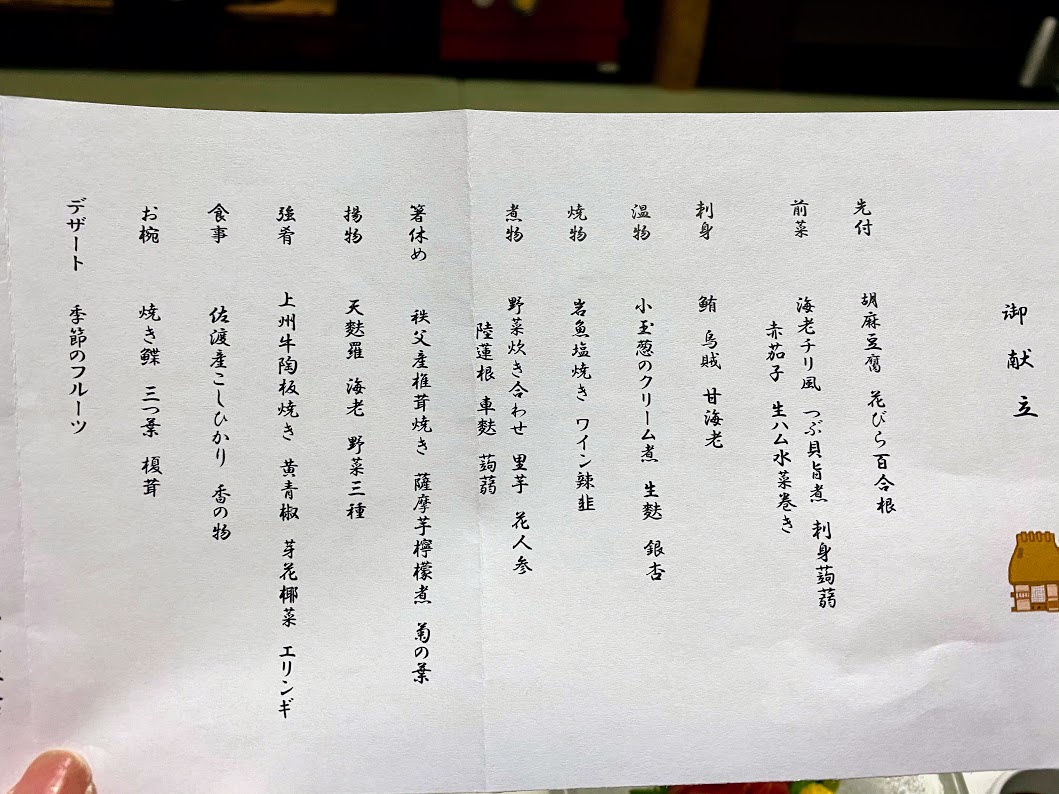 御献立
先付 胡麻豆腐 花びら百合根
前菜 海老チリ風 つぶ貝旨煮 刺身蒟蒻
赤茄子 生ハム水菜巻き
刺身 鮪 烏賊 甘海老
温物 小玉葱のクリーム煮 生麩 銀杏
焼物 岩魚塩焼き ワイン辣韭
煮物 野菜炊き合わせ 里芋 花人参
陸蓮根 車麩 蒟蒻
箸休め 秩父産椎茸焼き 薩摩芋檸檬煮 菊の葉
揚物 天麩羅 海老 野菜三種
強肴 上州牛陶板焼き 黄青椒 芽花椰菜 エリンギ
食事 佐渡産こしひかり 香の物
お椀 焼き鰈 三つ葉 榎茸
デザート 季節のフルーツ